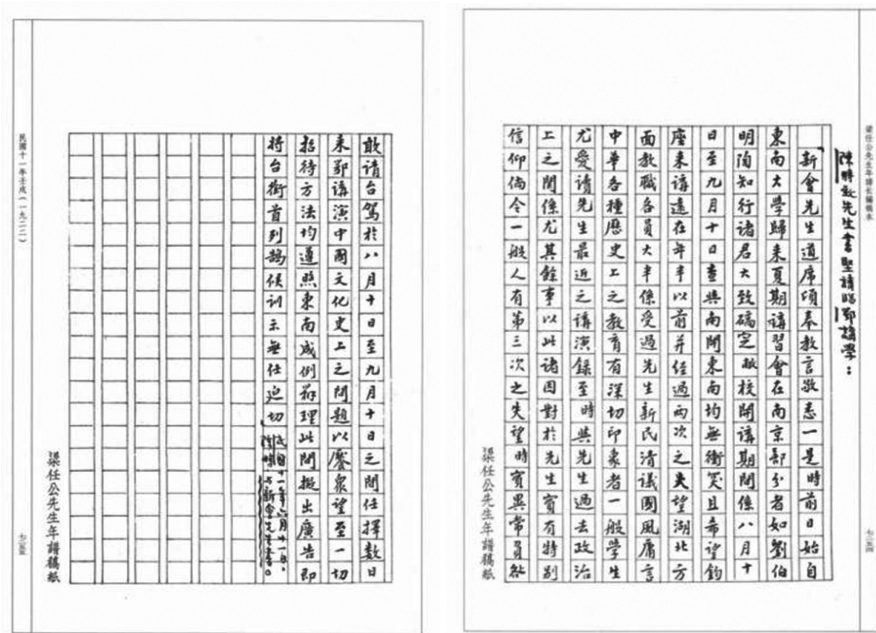 梁任公先生年譜長編稿本
陳時致先生書堅請蒞鄂講學：
「新會先生道席頃奉教言敬悉一是時前日始自
東南大學歸來夏期講習會在南京部分者如劉伯
明陶知行諸君大致確定敝校開講期間係八月十
日至九月十日查與南開東南均無衝突且希望鈞
座來講遠在年半以前并經過兩次之失望湖北方
面教職各員大半係受過先生新民清議國風庸言
中華各種歷史上之教育有深切印象者一般學生
尤愛請先生最近之講演錄至時與先生過去政治
上之關係尤其餘事以此諸因對於先生實有特別
信仰倘令一般人有第三次之失望時實異常負咎
梁任公先生年譜稿紙
敢請台駕於八月十日至九月十日之間任擇數日
來鄂講演中國文化史上之問題以饜衆望至一切
招待方法均遵照東南成例辦理此間擬出廣告即
將台銜首列鵠候訓示無任迫切」
民國十一年六月廿一日，
陳時與新會先生書。
梁任公先生年譜稿紙
民國十一年壬戌（一九二二）